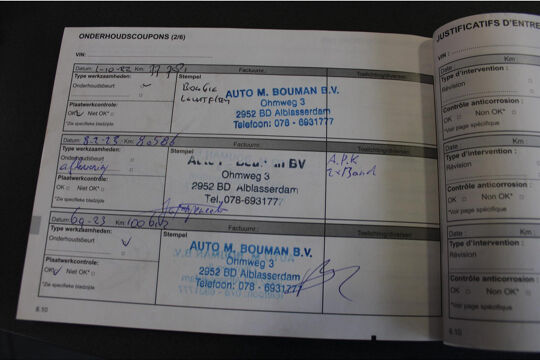 ONDERHOUDSCOUPONS (2/6)
VIN:
Datum: 1-10-22 Km: Factuurnr.: Toelichting/diversen
Type werkzaamheden: Stempel
Onderhoudsbeurt
Plaatwerkcontrole:
OK Niet OK*
*Zie specifieke bladzijde
AUTO M. BOUMAN B.V.
Ohmweg 3
2952 BD Alblasserdam
Telefoon: 078 - 6931777
Datum: Km: Factuurnr.: Toelichting/diversen
Type werkzaamheden: Stempel
Onderhoudsbeurt
Plaatwerkcontrole:
OK Niet OK*
*Zie specifieke bladzijde
BV
Ohmweg 3
2952 BD Alblasserdam
Tel. 078-6931777
A.P.K
Datum: Km: Factuurnr.: Toelichting/diversen
Type werkzaamheden: Stempel
Onderhoudsbeurt
Plaatwerkcontrole:
OK Niet OK*
*Zie specifieke bladzijde
AUTO M. BOUMAN B.V.
Ohmweg 3
2952 BD Alblasserdam
Telefoon: 078 - 6931777
6.10
JUSTIFICATIFS D'ENTRE
VIN :
Date : Km :
Type d'intervention :
Révision
Contrôle anticorrosion :
OK Non OK*
*Voir page spécifique
Date : Km :
Type d'intervention :
Révision
Contrôle anticorrosion :
OK Non OK*
*Voir page spécifique
Date : Km :
Type d'intervention :
Révision
Contrôle anticorrosion :
OK Non OK*
*Voir page spécifique
6.10